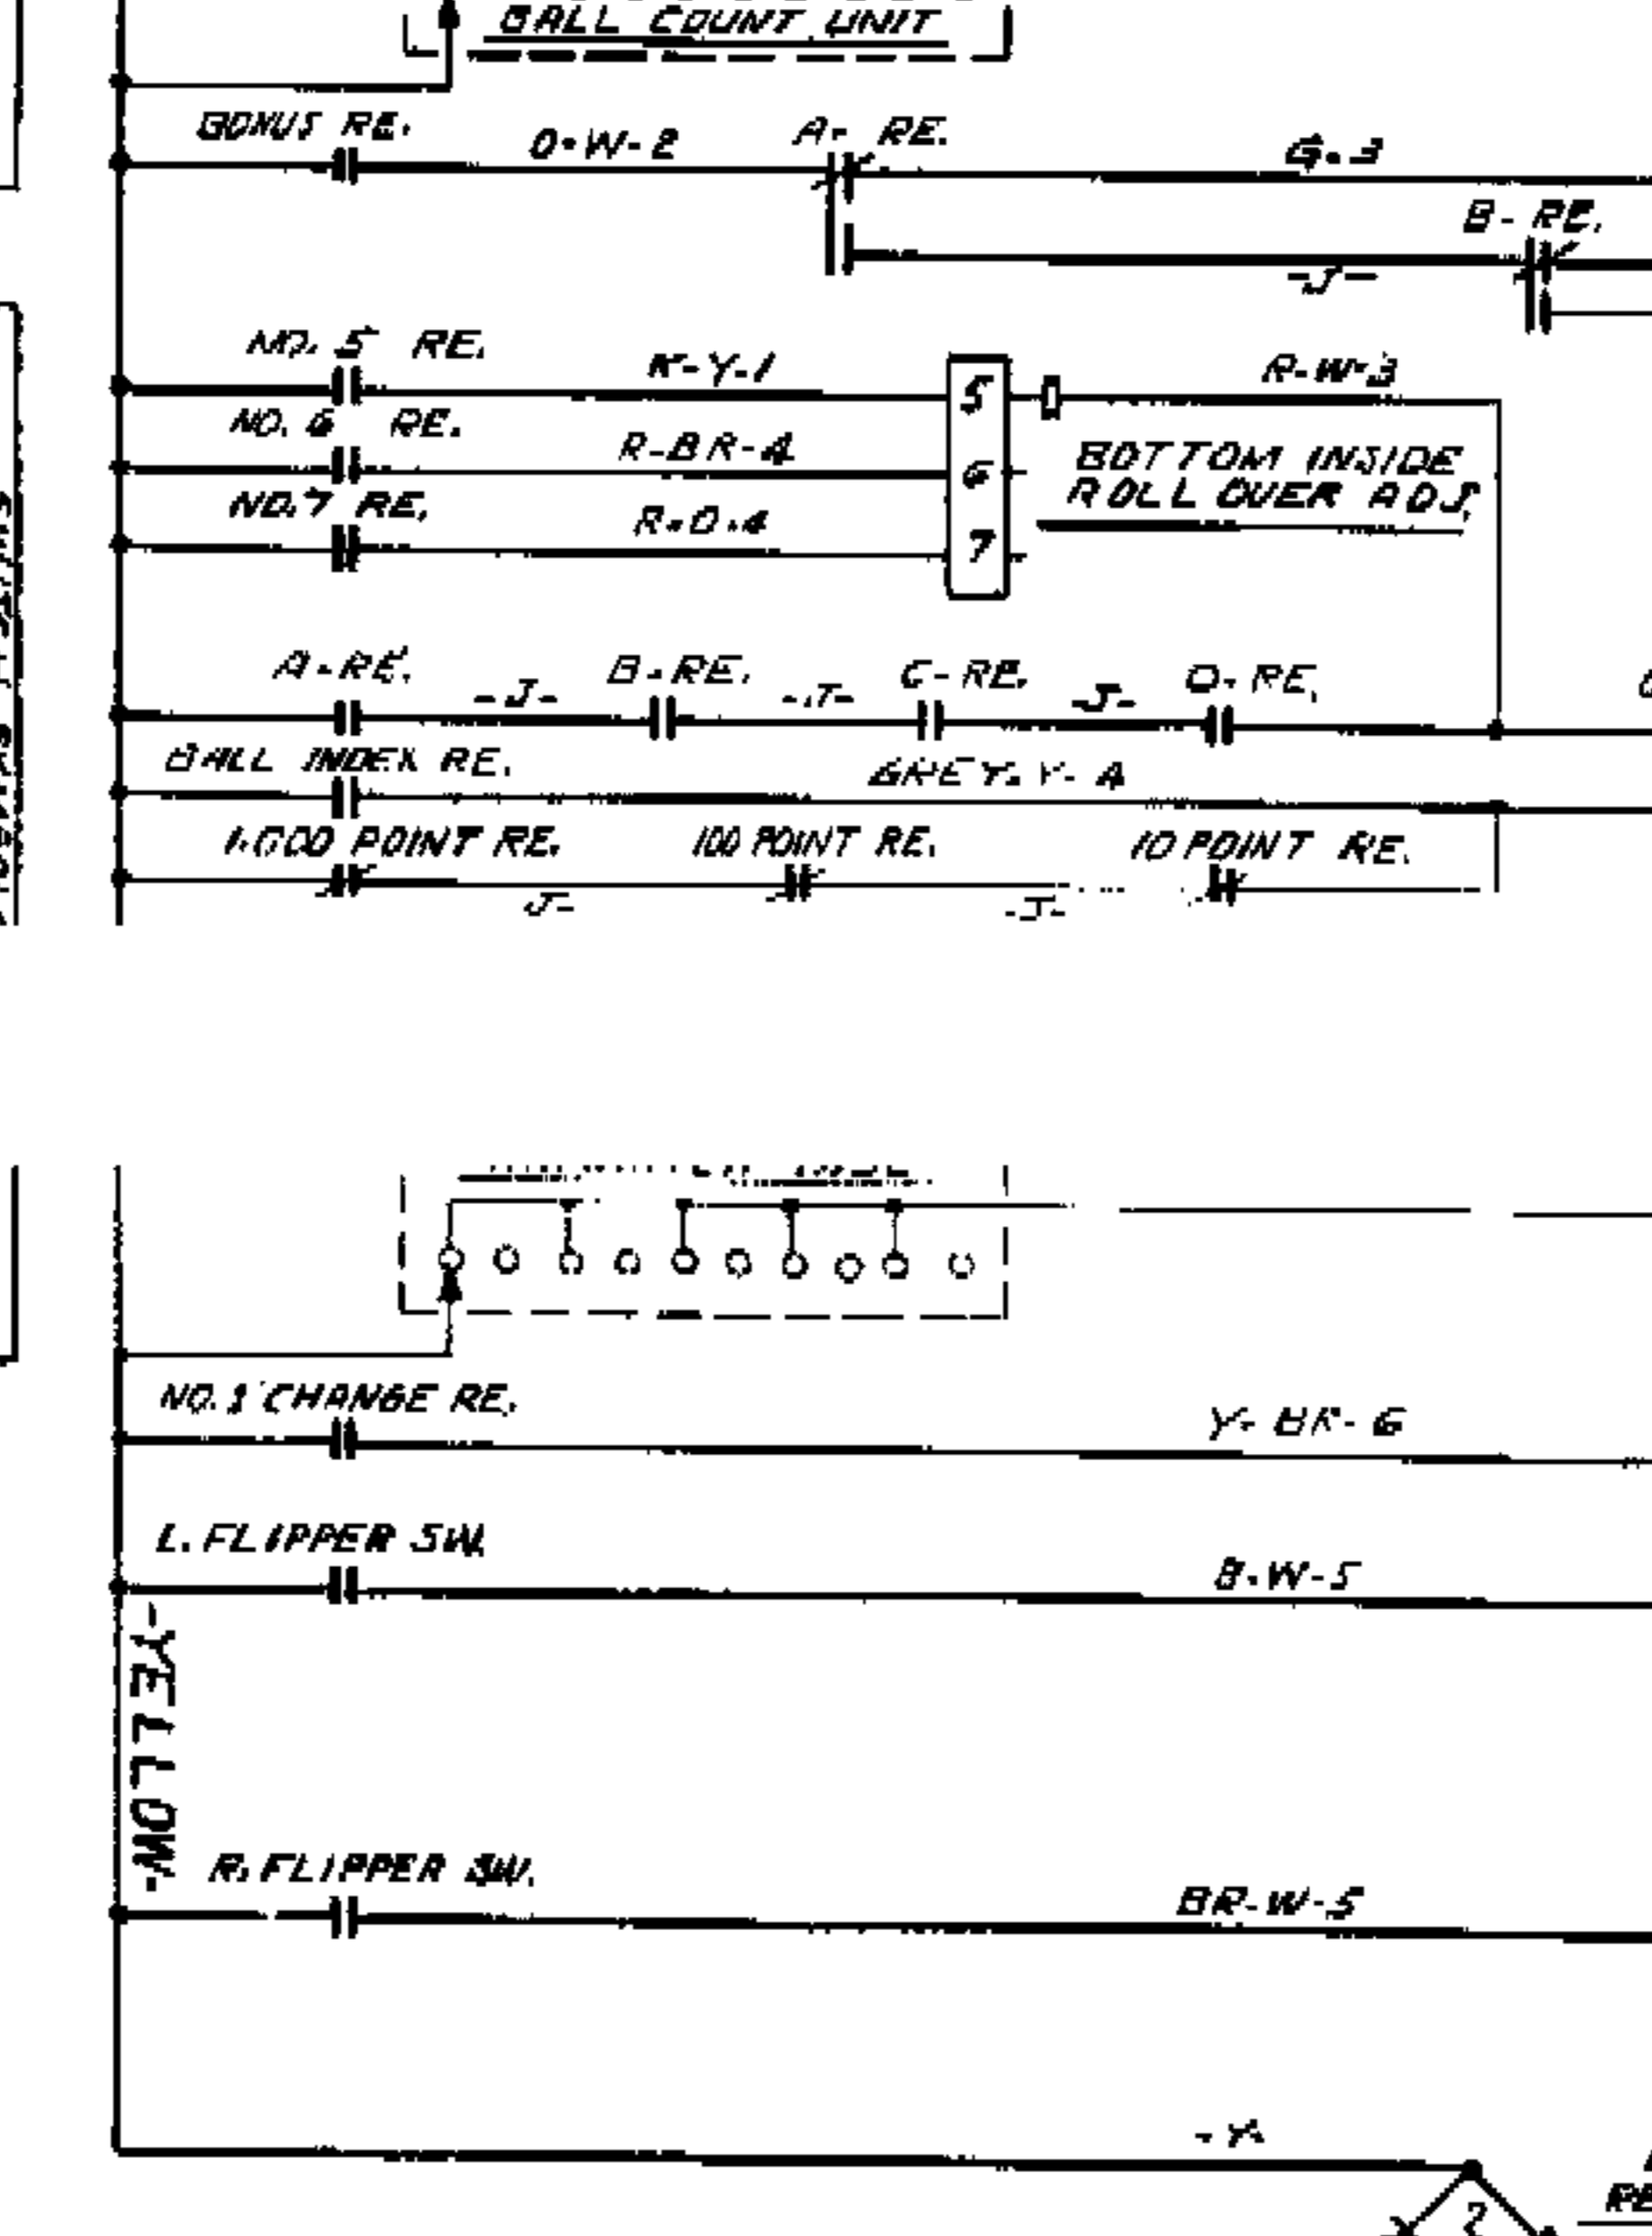 BALL COUNT UNIT
BONUS RE.
O-W-2
A- RE.
G-3
B- RE.
-J-
NO. 5 RE.
K-Y-1
5
R-W-3
NO. 6 RE.
R-BR-4
6
BOTTOM INSIDE
ROLL OVER ADJ.
NO. 7 RE.
R-O-4
7
A-RE.
-J-
B-RE.
-J-
C-RE.
-J-
D-RE.
BALL INDEX RE.
GREY-Y-4
1,000 POINT RE.
100 POINT RE.
10 POINT RE.
-J-
-J-
NO. 1 CHANGE RE.
Y-BR-6
L. FLIPPER SW.
B-W-5
-YELLOW-
R. FLIPPER SW.
BR-W-5
-Y-